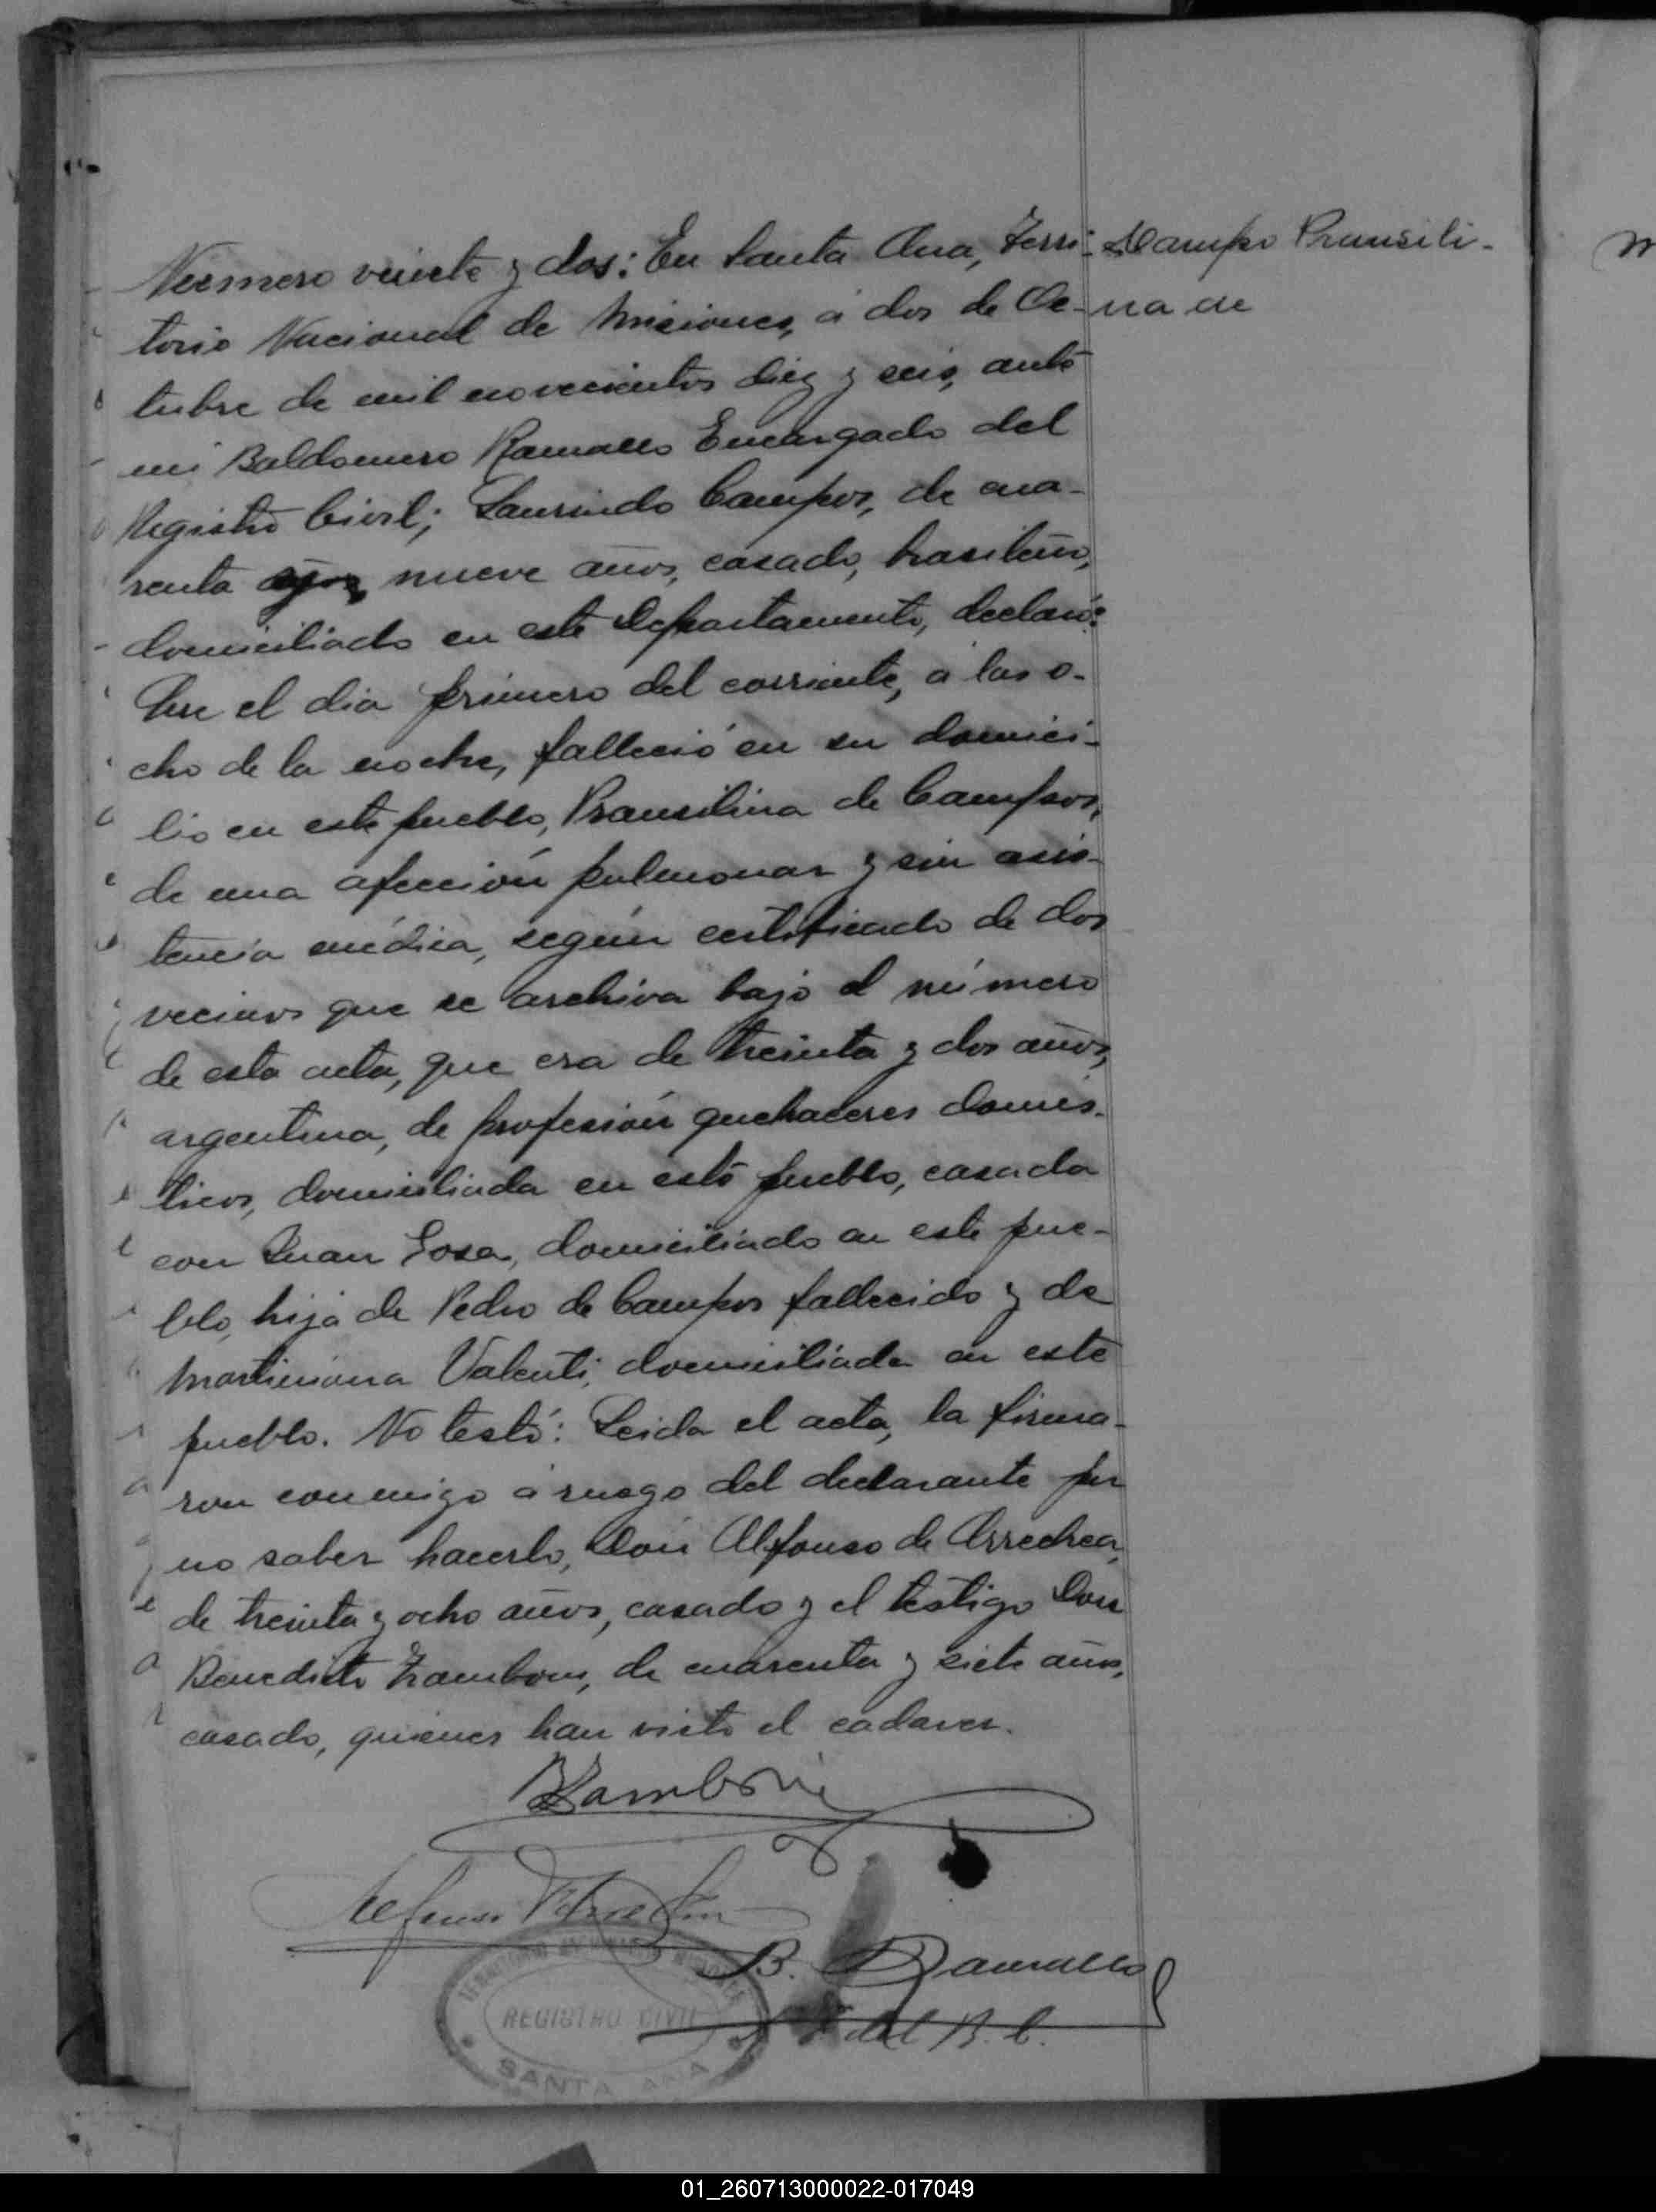 Número veinte y dos: En Santa Ana, Terri-
Campo Pransili-
torio Nacional de Misiones, á dos de Oc-
na de
tubre de mil novecientos diez y seis, ante
mi Baldomero Ramallo Encargado del
Registro Civil; Laurindo Campos, de cua-
renta nueve años, casado, brasilero,
domiciliado en este Departamento, declaró:
Que el dia primero del corriente, á las o-
cho de la noche, falleció en su domici-
lio en este pueblo, Pransilina de Campos,
de una afección pulmonar y sin asis-
tencia médica, según certificado de dos
vecinos que se archiva bajo el número
de esta acta, que era de treinta y dos años,
argentina, de profesión quehaceres domés-
ticos, domiciliada en este pueblo, casada
con Juan Sosa, domiciliado en este pue-
blo, hija de Pedro de Campos fallecido y de
Martiniana Valenti, domiciliada en este
pueblo. No testó: Leida el acta, la firma-
ron conmigo á ruego del declarante por
no saber hacerlo, Don Alfonso de Arrechea,
de treinta y ocho años, casado y el testigo Don
Benedicto Zamboni, de cuarenta y siete años,
casado, quienes han visto el cadaver.
BZamboni
Alfonso
B. Ramallo
del R. C.
REGISTRO CIVIL
SANTA ANA
01_260713000022-017049